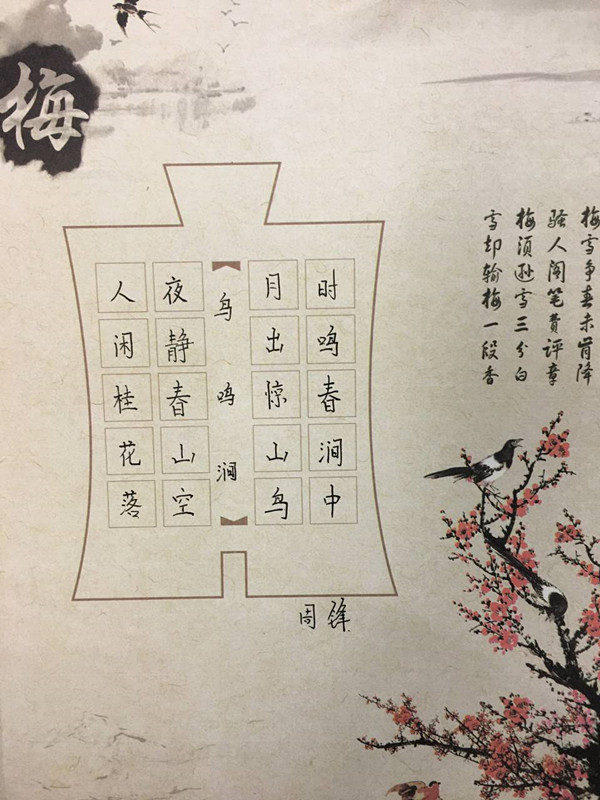 梅
人闲桂花落
夜静春山空
鸟鸣涧
月出惊山鸟
时鸣春涧中
周锋
梅雪争春未肯降
骚人阁笔費評章
梅须逊雪三分白
雪却输梅一段香